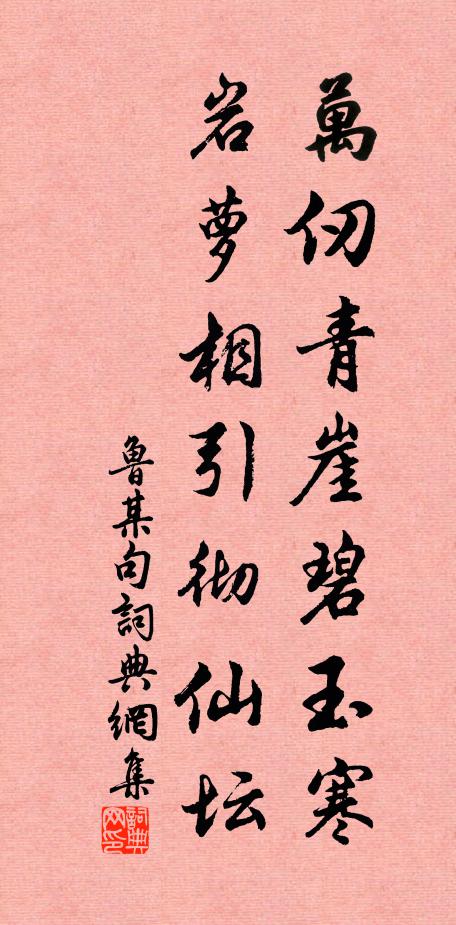 萬仞青崖碧玉寒
岩萝相引彻仙坛
魯某句詞典網集
詞典网印